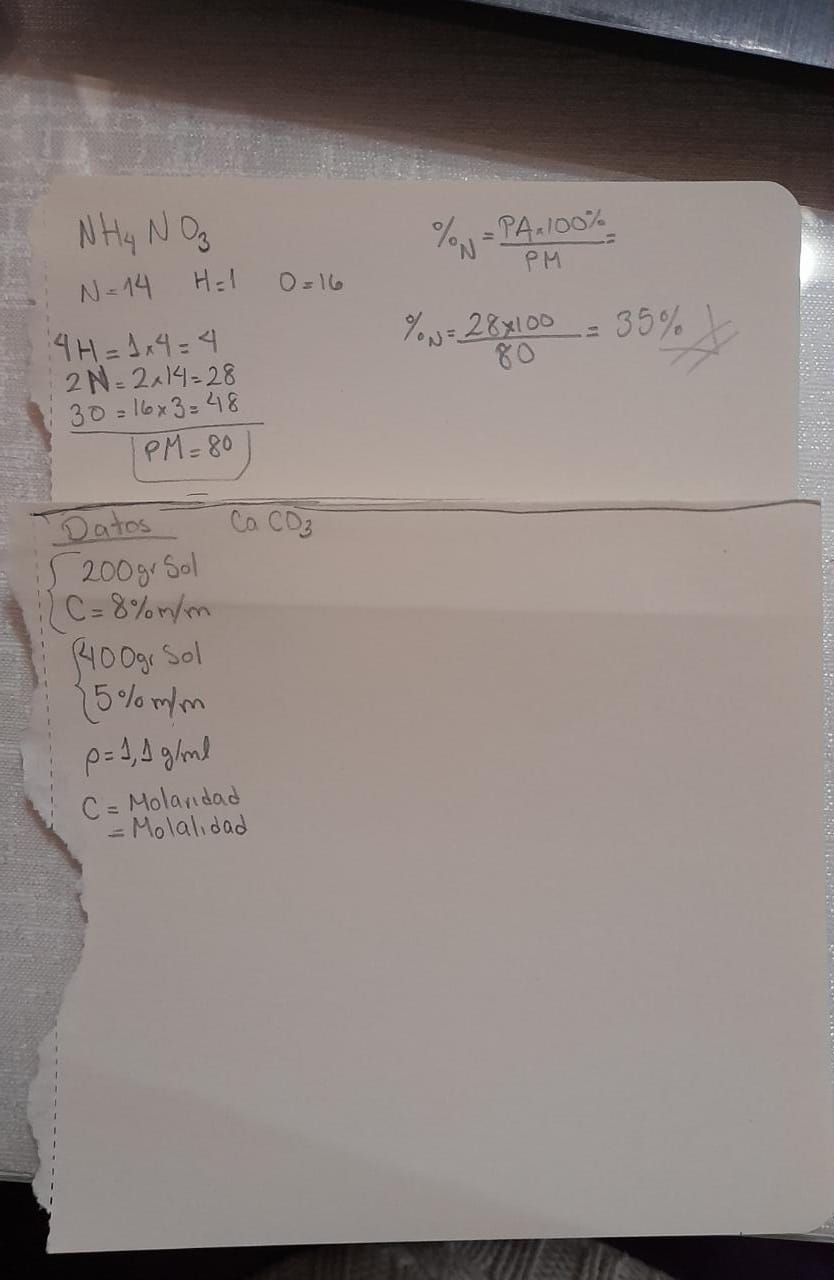 NH4 NO3
N=14 H=1 O=16
4H=1x4=4
2N=2x14=28
3O=16x3=48
PM=80
%N=PAx100%/PM=
%N=28x100/80=35%
Datos CaCO3
200gr Sol
C=8%m/m
400gr Sol
5%m/m
ρ=1,1g/ml
C=Molaridad
=Molalidad